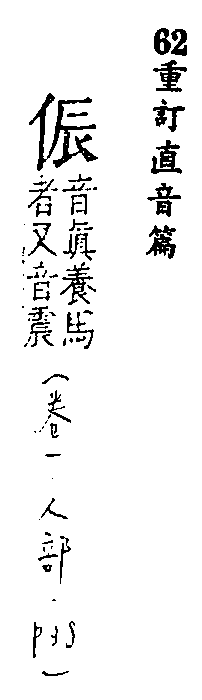 62重訂直音篇
侲
音眞養馬
者又音震
（卷一·人部·p35）